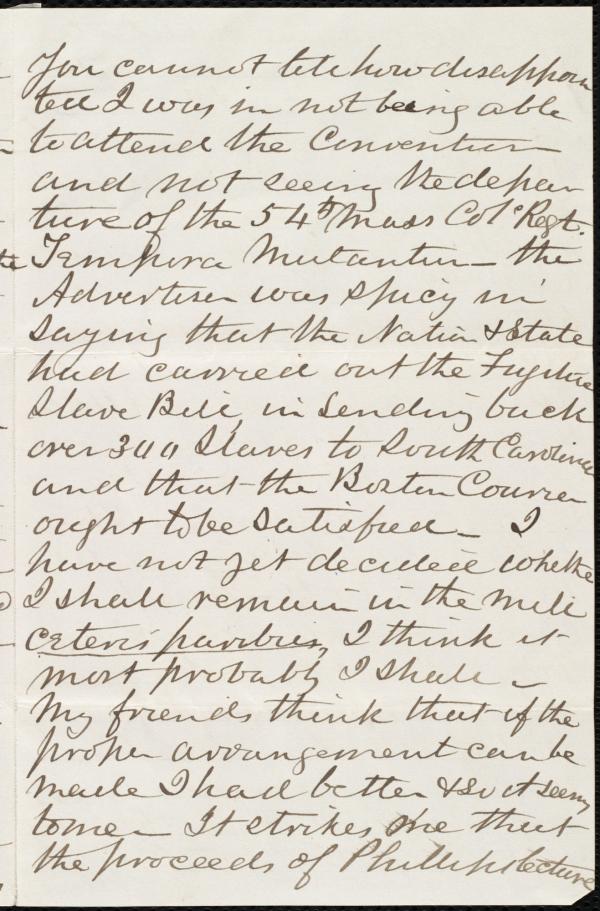 You cannot tell how disappoin
ted I was in not being able
to attend the Convention
and not seeing the depar
ture of the 54th Mass Cold Regt.
Tempora Mutantur – the
Advertiser was spicy in
saying that the Nation & State
had carried out the Fugitive
Slave Bill, in sending back
over 300 Slaves to South Carolina
and that the Boston Courier
ought to be satisfied – I
have not yet decided whether
I shall remain in the mill
ceteris paribus, I think it
most probably I shall –
My friends think that if the
proper arrangement can be
made I had better & so it seems
to me – It strikes me that
the proceeds of Phillips lecture